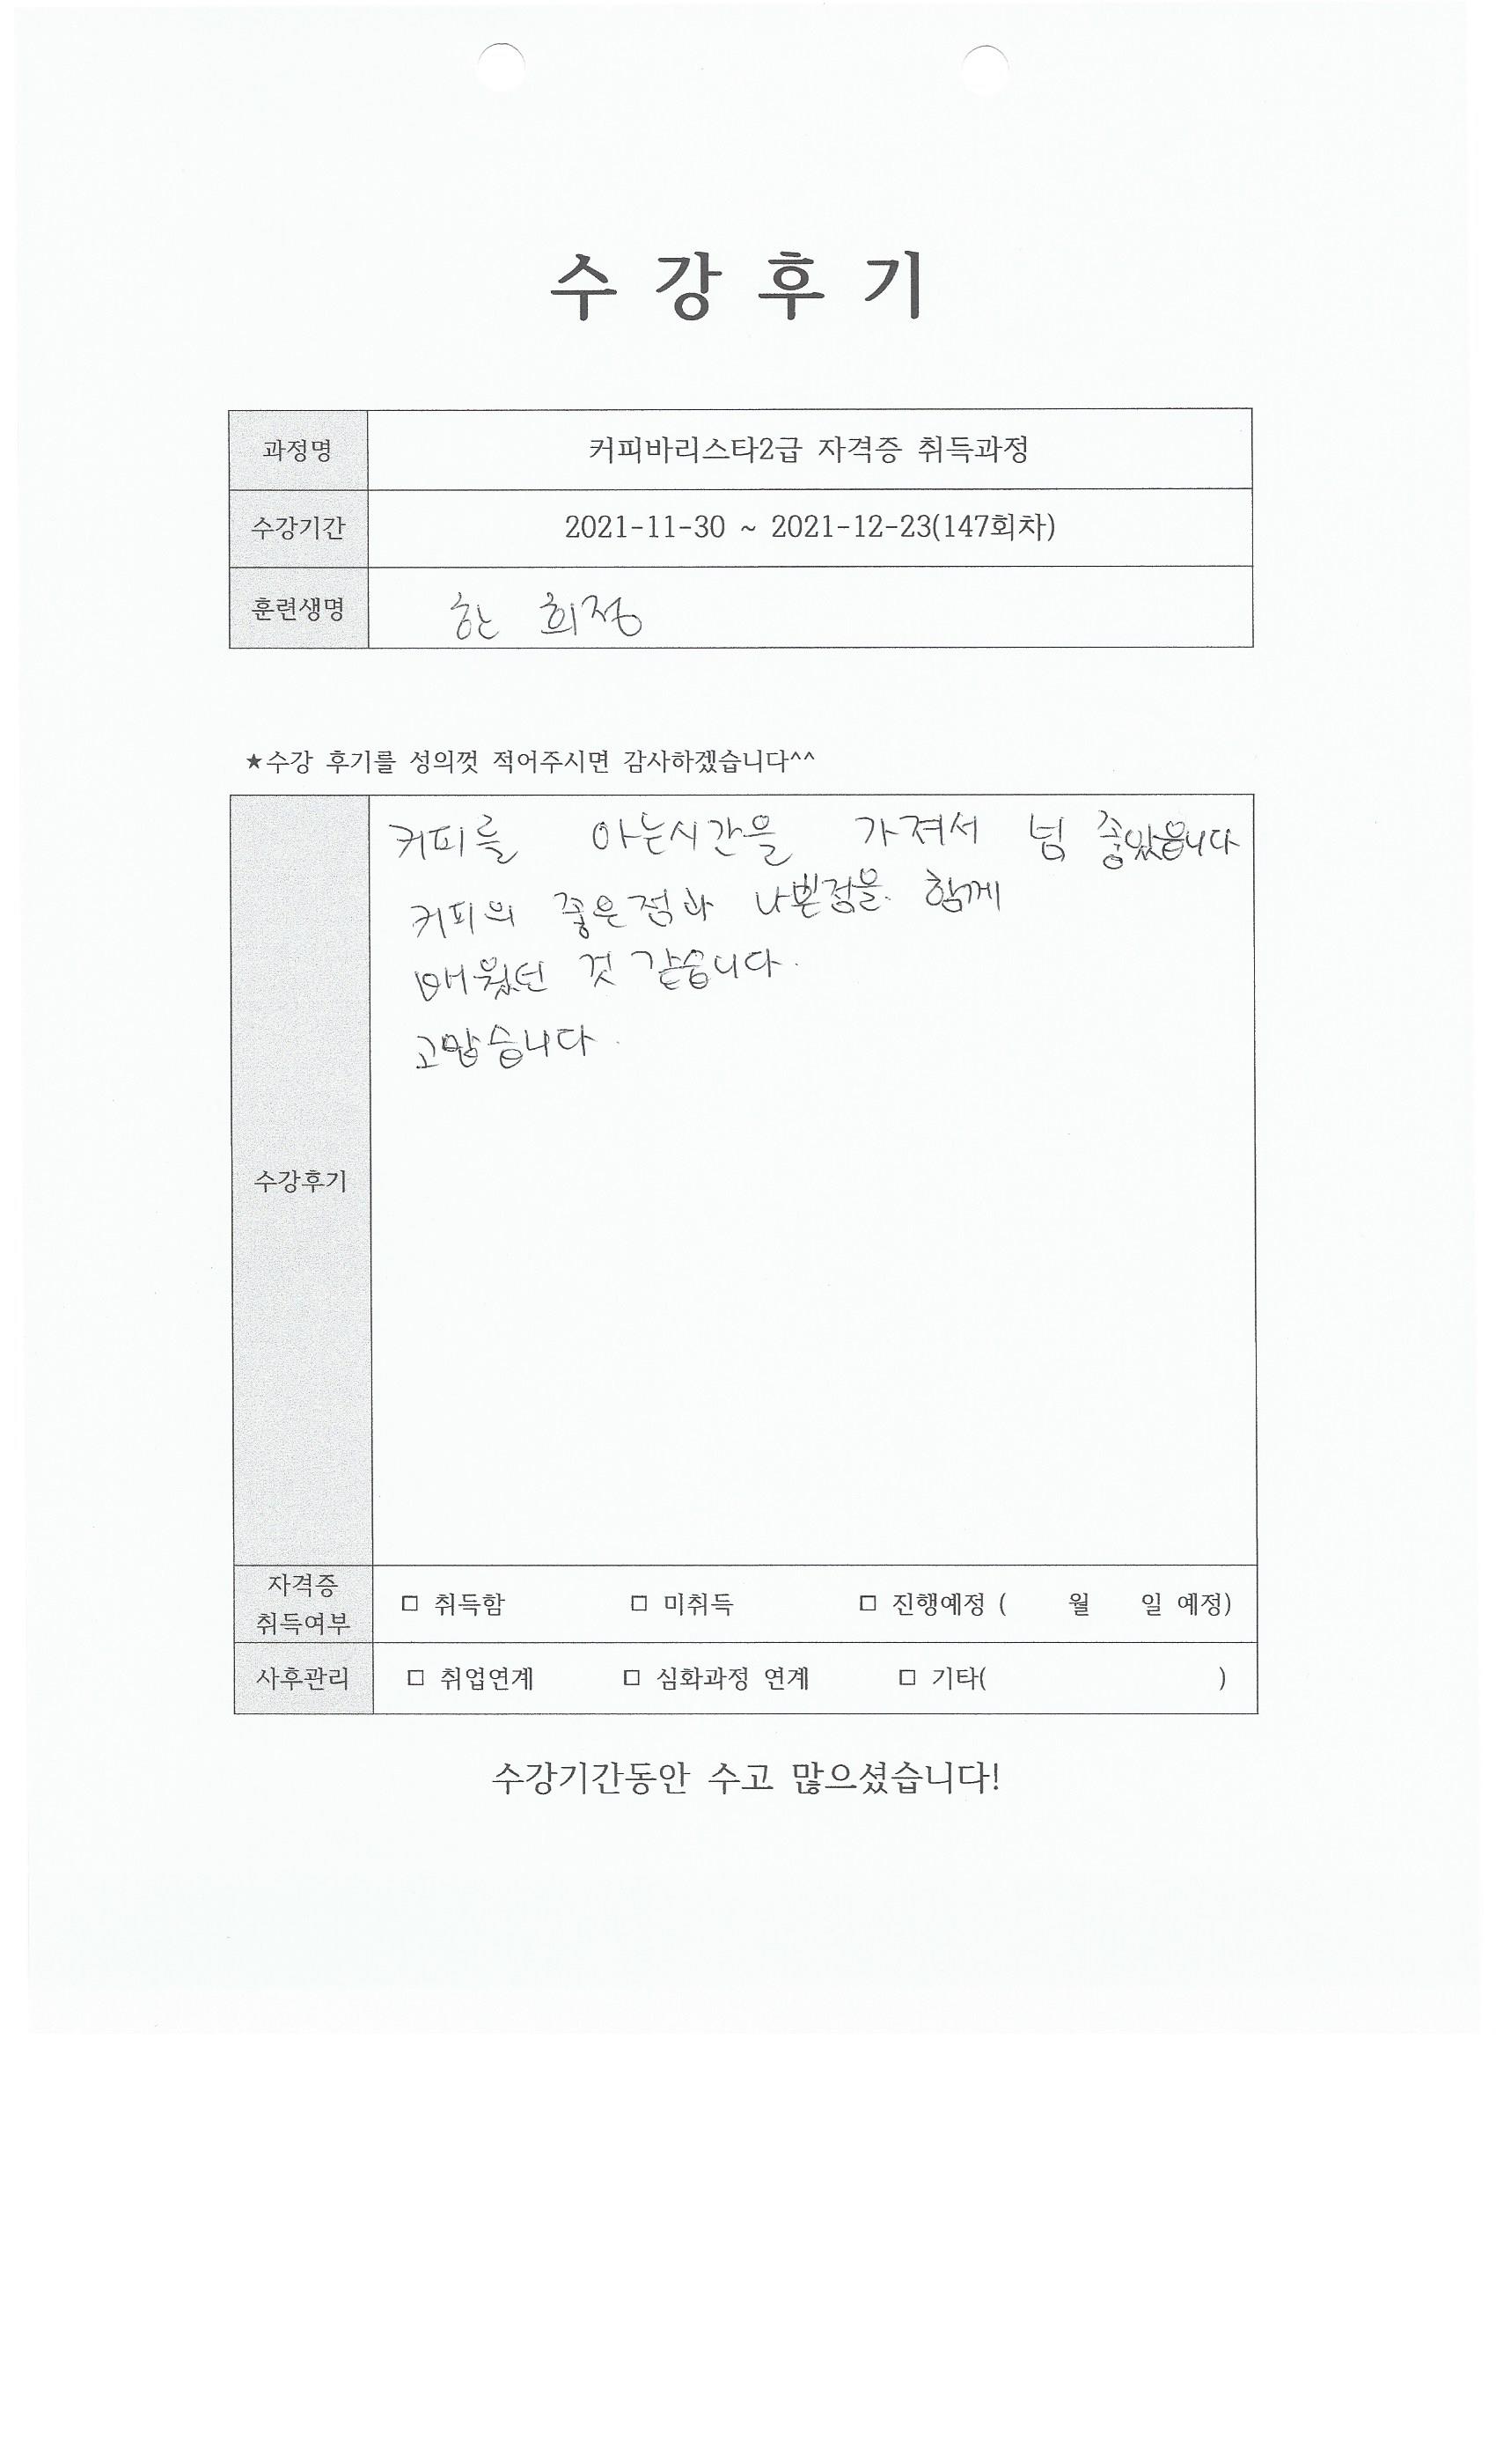 수 강 후 기
과정명 커피바리스타2급 자격증 취득과정
수강기간 2021-11-30 ~ 2021-12-23(147회차)
훈련생명 한 희정
★수강 후기를 성의껏 적어주시면 감사하겠습니다^^
커피를 아는시간을 가져서 넘 좋았읍니다
커피의 좋은점과 나쁜점을. 함께
배웠던 것 같습니다.
고맙습니다.
수강후기
자격증
취득여부
□ 취득함 □ 미취득 □ 진행예정 ( 월 일 예정)
사후관리 □ 취업연계 □ 심화과정 연계 □ 기타( )
수강기간동안 수고 많으셨습니다!